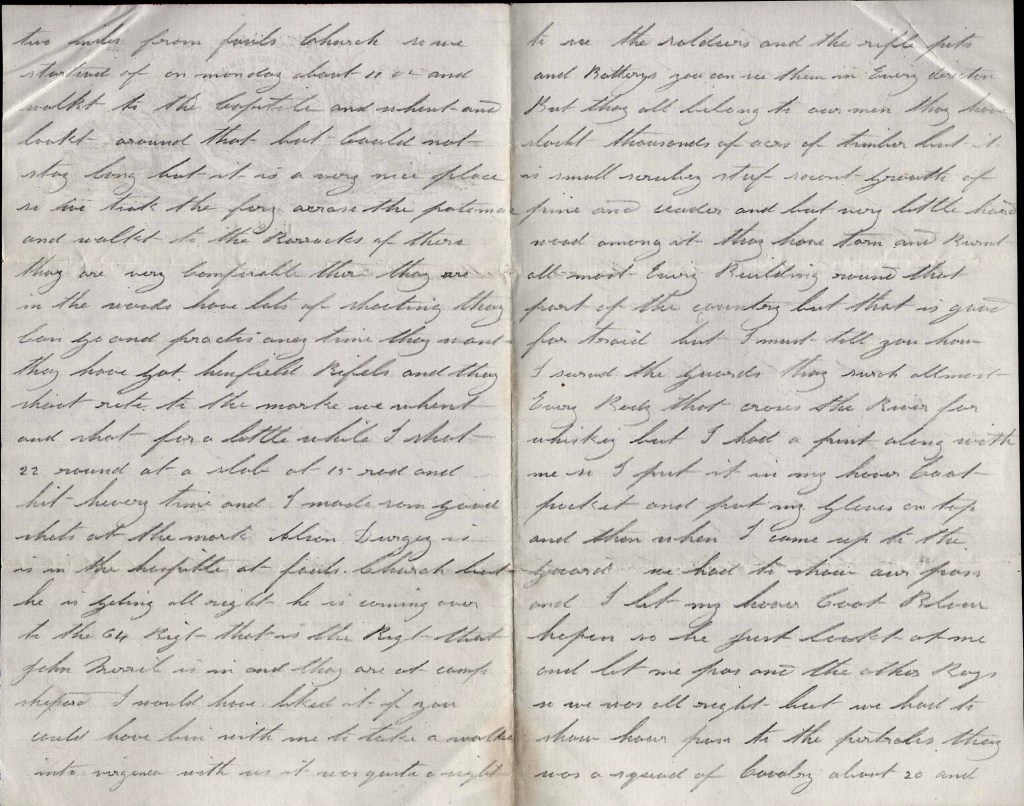 two miles from fails Church so we
startind of on monday about 11 oc and
walkt to the Capitile and whent and
lookt around that but Could not
stay long but it is a very nice place
so we tick the fery acrase the potemac
and walkt to the Barracks of there
thay are very Comfirable ther thay are
in the woods have lots of shooting thay
Can go and practis aney time thay want
thay have got henfield Rifels and thay
shoot rite to the marke we whent
and shot for a little while I shot
22 round at a slab at 15 rod and
hit hevery time and I made som good
shots at the mark Alson Durgey is
is in the hospitle at fails Church but
he is geting all right he is coming over
to the 64 Rigt that is the Rigt that
John Merril is in and thay are at camp
sheperd I would have liked it if you
could have bin with me to take a walke
into virginea with us it was quite a sight
to see the soldeers and the rifle pits
and Batterys you can see them in Every direction
But thay all belong to our men thay have
slasht thousands of acers of timber but it
is small scrubey stuf secont growth of
pine and ceader and but very little hard
wood among it thay have torn and Burnt
all most Every Building round that
part of the country but that is good
for traid but I must till you how
I sarved the guards thay surch allmost
Every Body that croses the River for
whiskey but I had a pint along with
me so I put it in my hover Coat
pocket and put my gloves on top
and then when I came up to the
guard we had to show our pass
and I let my hover Coat Blow
hopen so he just lookt at me
and let me pas and the other Boys
so we was all right but we had to
show hour pass to the pertroles thay
was a squad of Cavalry about 20 and